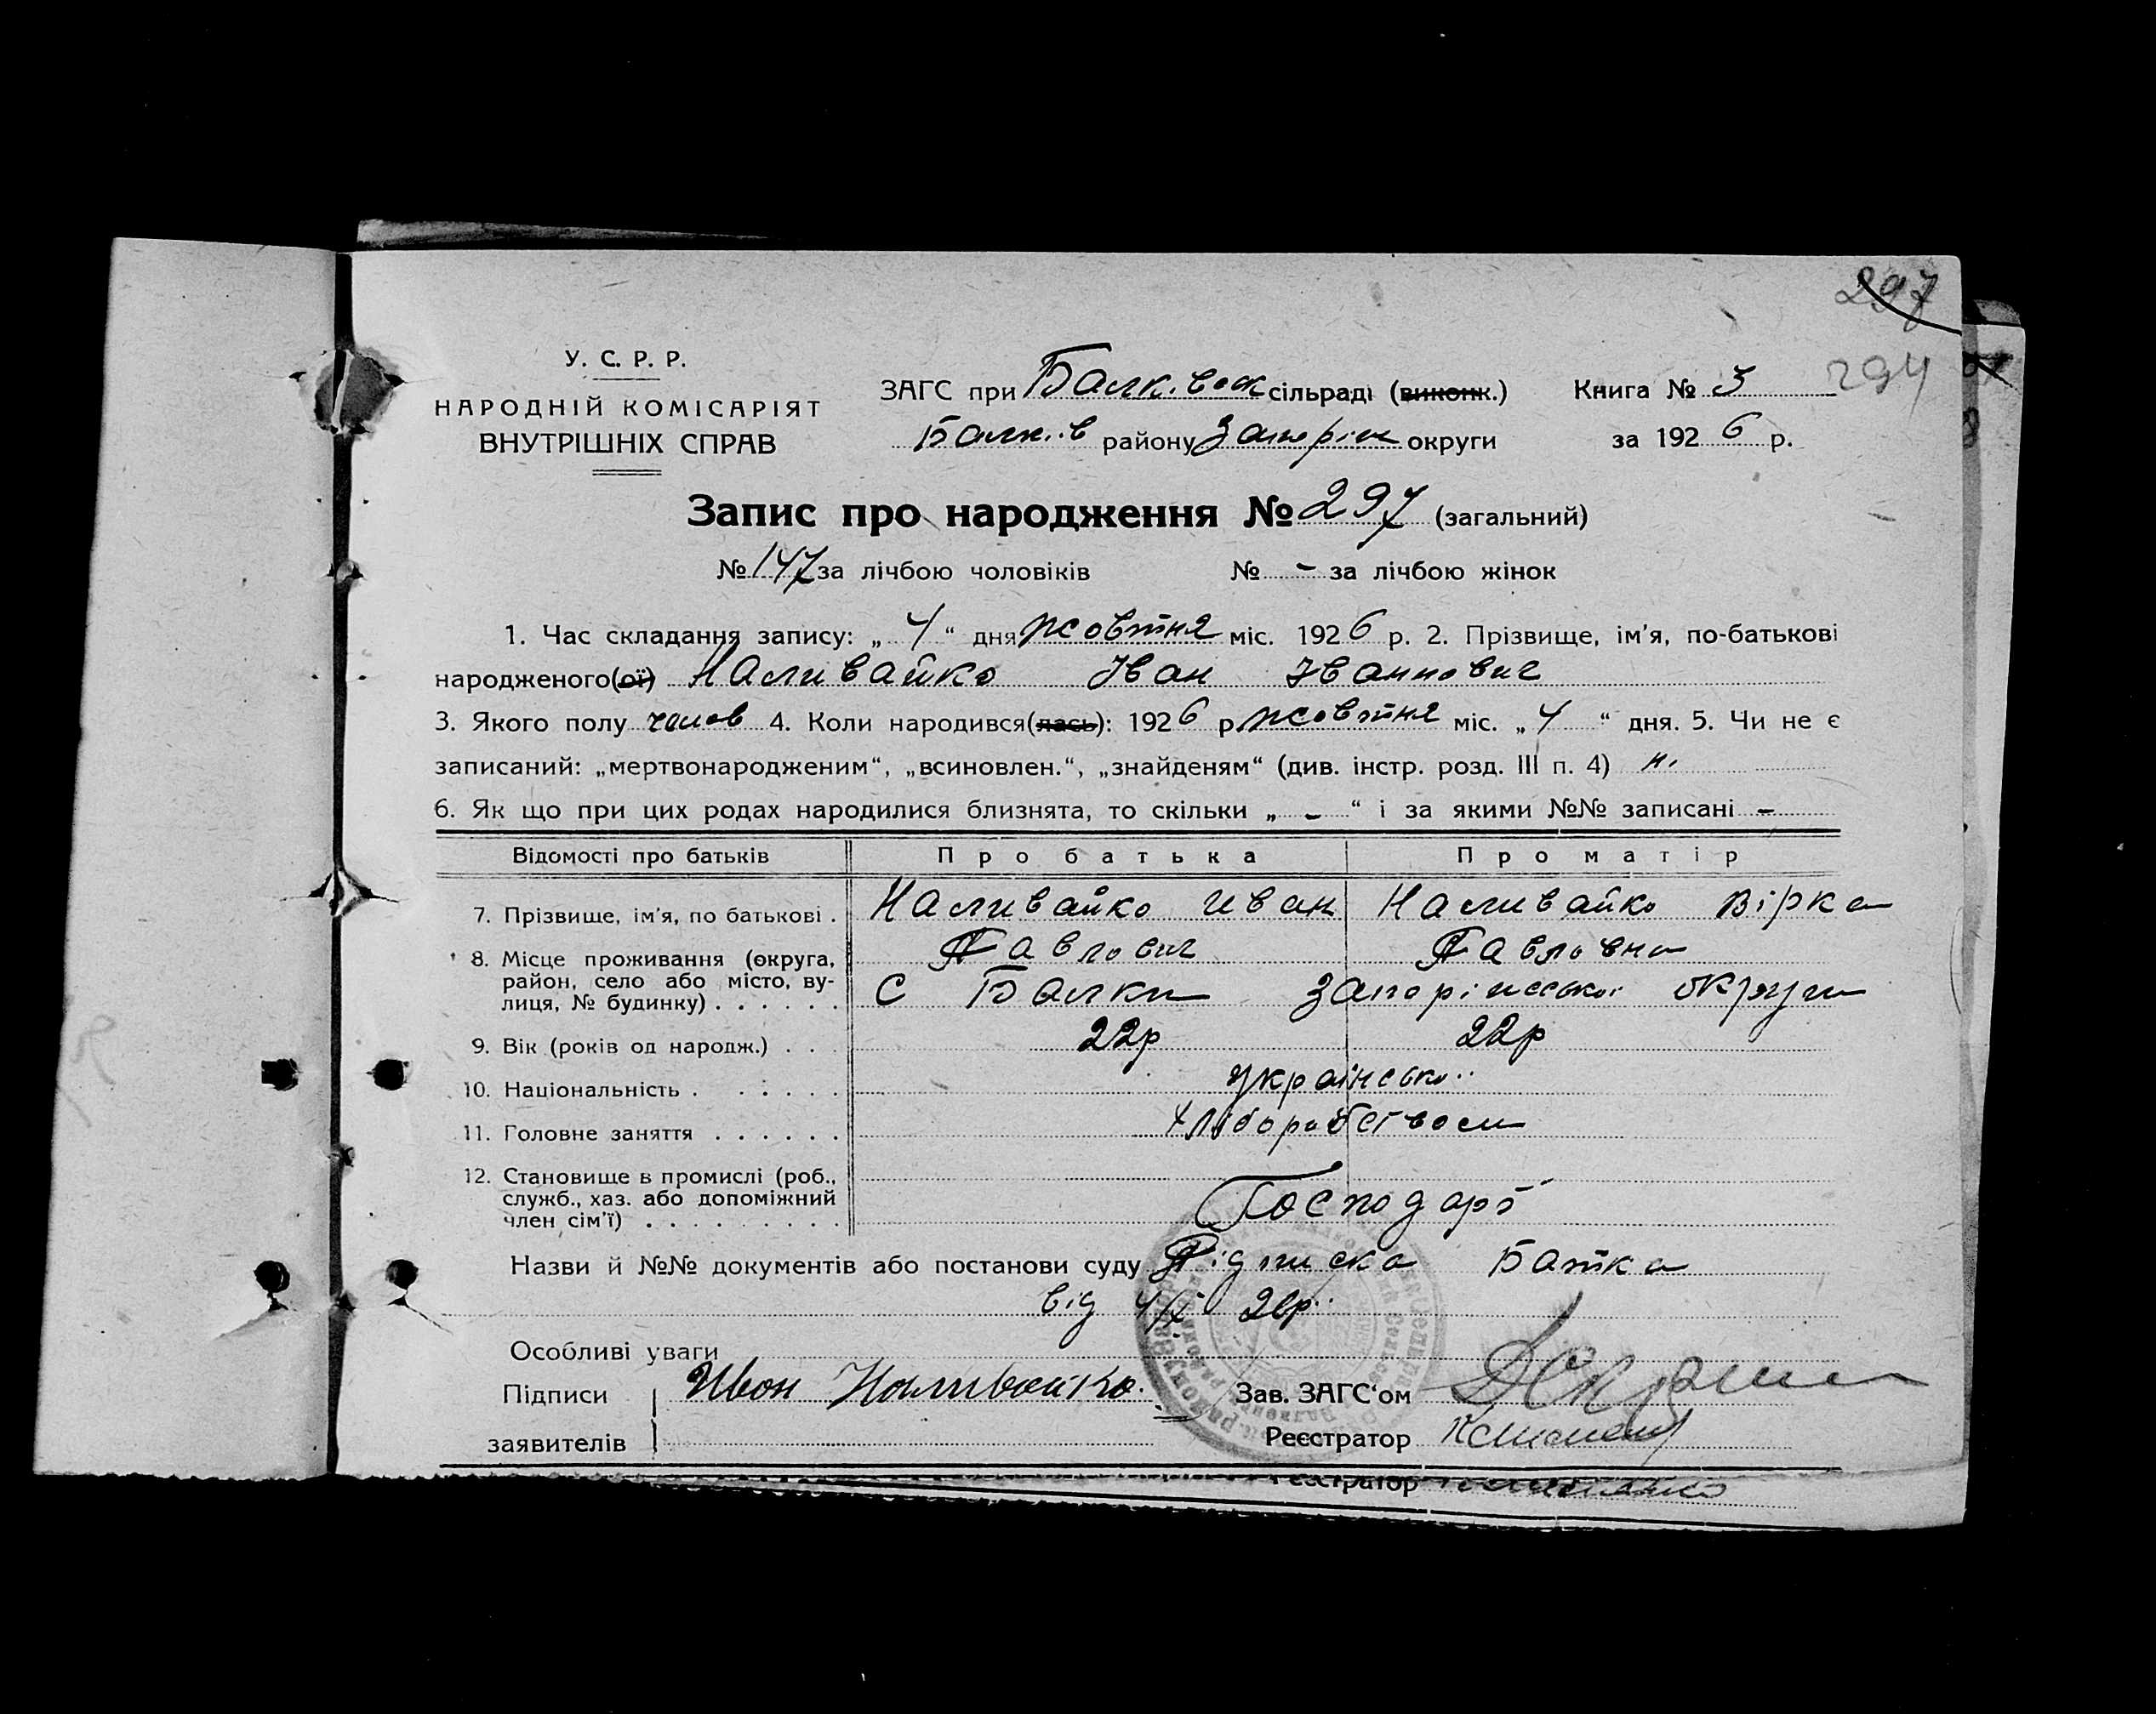 297
294
У. С. Р. Р.
НАРОДНІЙ КОМІСАРІЯТ
ВНУТРІШНІХ СПРАВ
ЗАГС при Балк.вск сільраді (виконк.) Книга № 3
Балків району Запоріж округи за 1926 р.
Запис про народження № 297 (загальний)
№ 147 за лічбою чоловіків № - за лічбою жінок
1. Час складання запису: „4“ дня жовтня міс. 1926 р. 2. Прізвище, ім'я, по-батькові
народженого(ої) Наливайко Іван Іванович
3. Якого полу чолов 4. Коли народився(лась): 1926 р. жовтня міс. „4“ дня. 5. Чи не є
записаний: „мертвонародженим“, „всиновлен.“, „знайденям“ (див. інстр. розд. III п. 4) ні
6. Як що при цих родах народилися близнята, то скільки „-“ і за якими №№ записані -
Відомості про батьків Про батька Про матір
7. Прізвище, ім'я, по батькові . Наливайко Иван Наливайко Вірка
Павлович Павловна
8. Місце проживання (округа,
район, село або місто, ву-
лиця, № будинку) . . . . . . с Балки Запоріжської округи
9. Вік (років од народж.) . . . 22р 22р
10. Національність . . . . . . української
11. Головне заняття . . . . . . Хліборобством
12. Становище в промислі (роб.,
служб., хаз. або допоміжний
член сім'ї) . . . . . . . . . Господарь
Назви й №№ документів або постанови суду Підписка Батка
від 4/X 26р.
Особливі уваги
Підписи Иван Наливайко. Зав. ЗАГС'ом
заявителів Реєстратор
Реєстратор